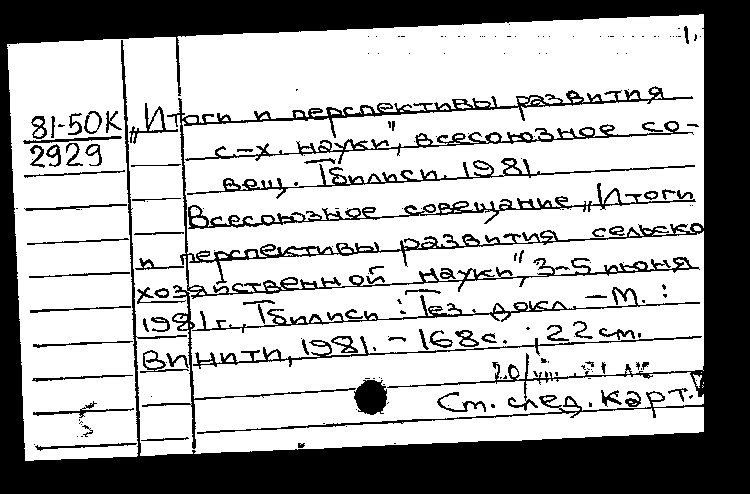 1.
81-50К
2929
„Итоги и перспективы развития
с.-х. науки", всесоюзное со-
вещ. Тбилиси. 1981.
Всесоюзное совещание „Итоги
и перспективы развития сельско
хозяйственной науки", 3-5 июня
1981г., Тбилиси : Тез. докл. - М. :
ВИНИТИ, 1981. - 168с. ; 22см.
20/viii
См. след. карт.
5